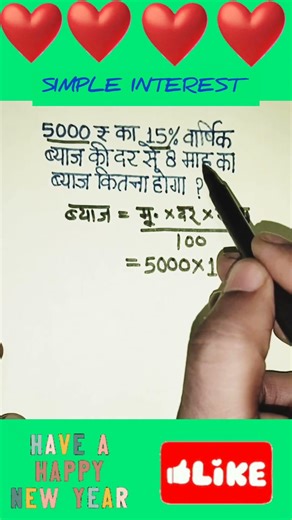 SIMPLE INTEREST
5000 ₹ का 15% वार्षिक
ब्याज की दर से 8 माह का
ब्याज कितना होगा ?
ब्याज = मू. × दर ×
100
= 5000 × 1
HAVE A
HAPPY
NEW YEAR
LIKE